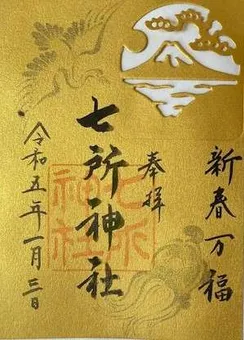 新春万福
奉拝
七所神社
七所神社
令和五年一月三日